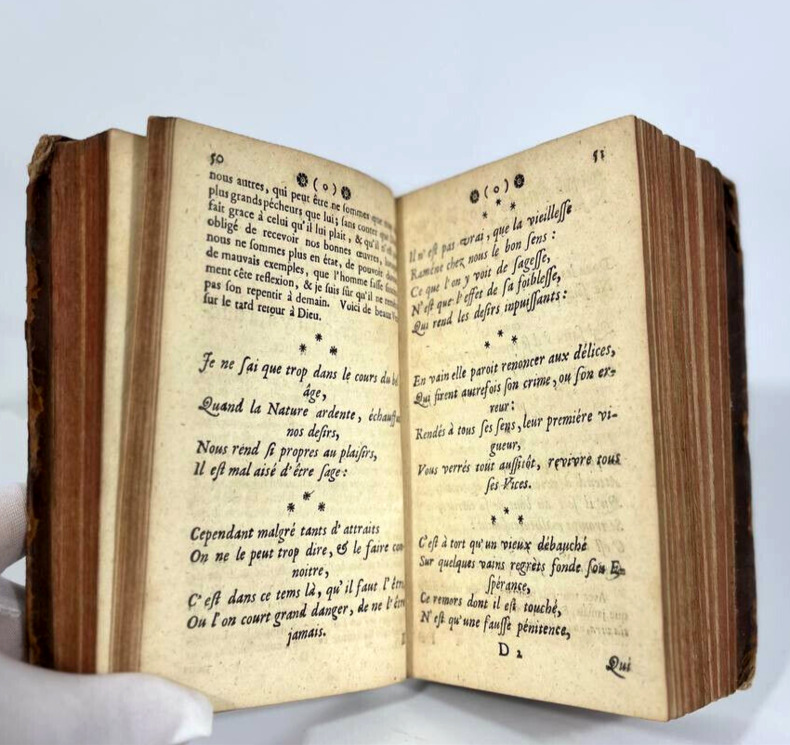 50
( o )
nous autres, qui peut être ne sommes que
plus grands pécheurs que lui; sans conter que
fait grace à celui qu'il lui plait, & qu'il n'est
obligé de recevoir nos bonnes œuvres,
nous ne sommes plus en état, de pouvoir
de mauvais exemples, que l'homme fasse
ment cête reflexion, & je suis sûr qu'il ne
pas son repentir à demain. Voici de beaux
sur le tard retour à Dieu.
* * *
Je ne sai que trop dans le cours du
âge,
Quand la Nature ardente,
nos desirs,
Nous rend si propres au plaisirs,
Il est mal aisé d'être sage:
* * *
Cependant malgré tants d'attraits
On ne le peut trop dire, & le faire con
noitre,
C'est dans ce tems là, qu'il faut l'être
Ou l'on court grand danger, de ne l'être
jamais.
51
( o )
* * *
Il n'est pas vrai, que la vieillesse
Raméne chez nous le bon sens:
Ce que l'on y voit de sagesse,
N'est que l'effet de sa foiblesse,
Qui rend les desirs inpuissants:
* * *
En vain elle paroit renoncer aux délices,
Qui firent autrefois son crime, ou son er-
reur:
Rendés à tous ses sens, leur premiére vi-
gueur,
Vous verrés tout aussitôt, revivre tous
ses Vices.
* * *
C'est à tort qu'un vieux débauché
Sur quelques vains regrets fonde son E-
spérance,
Ce remors dont il est touché,
N'est qu'une fausse pénitence,
D 2
Qui